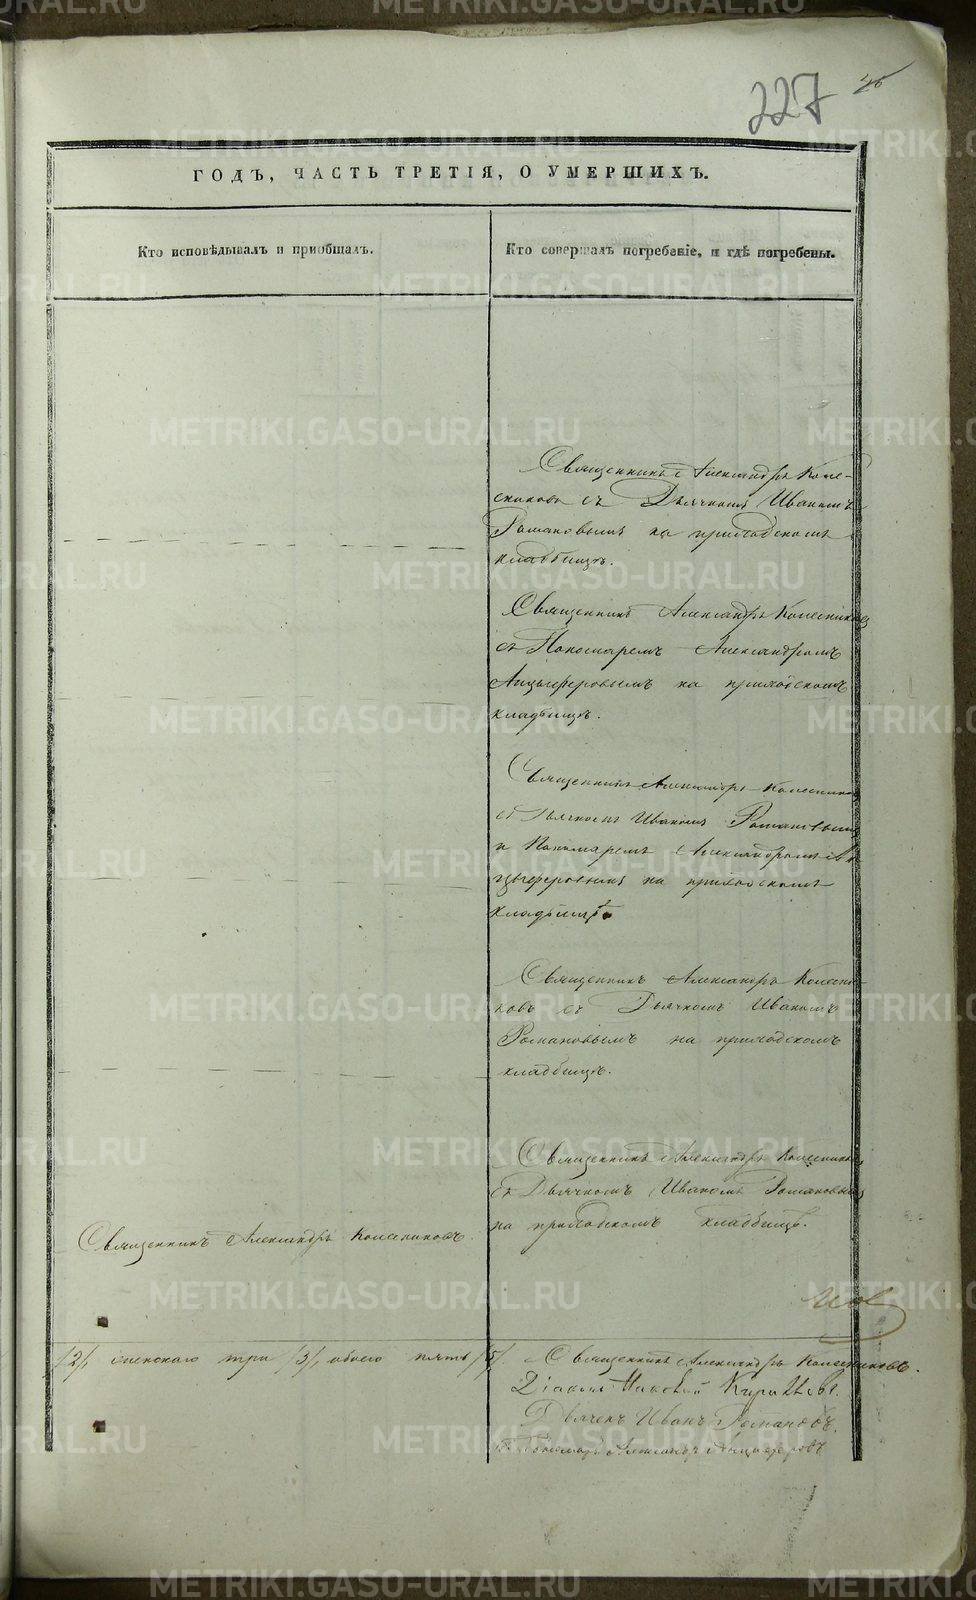 227
46
ГОДЪ, ЧАСТЬ ТРЕТІЯ, О УМЕРШИХЪ.
Кто исповѣдывалъ и пріобщалъ.
Кто совершалъ погребеніе, и гдѣ погребены.
Священникъ Александръ Коле-
сниковъ съ Дьячкомъ Иваномъ
Романовымъ на приходскомъ
кладбищѣ.
Священникъ Александръ Колесниковъ
съ Пономаремъ Александромъ
Анцыферовымъ на приходскомъ
кладбищѣ.
Священникъ Александръ Колесниковъ
съ Дьячкомъ Иваномъ Романовымъ
и Пономаремъ Александромъ Ан-
цыферовымъ на приходскомъ
кладбищѣ.
Священникъ Александръ Колесни-
ковъ съ Дьячкомъ Иваномъ
Романовымъ на приходскомъ
кладбищѣ.
Священникъ Александръ Колесниковъ
съ Дьячкомъ Иваномъ Романовымъ
на приходскомъ кладбищѣ.
Священникъ Александръ Колесниковъ.
/2/, женскаго три /3/, обоего пять /5/.
Священникъ Александръ Колесниковъ.
Діаконъ
Дьячекъ Иванъ Романовъ.
Пономарь Александръ Анцыферовъ
METRIKI.GASO-URAL.RU